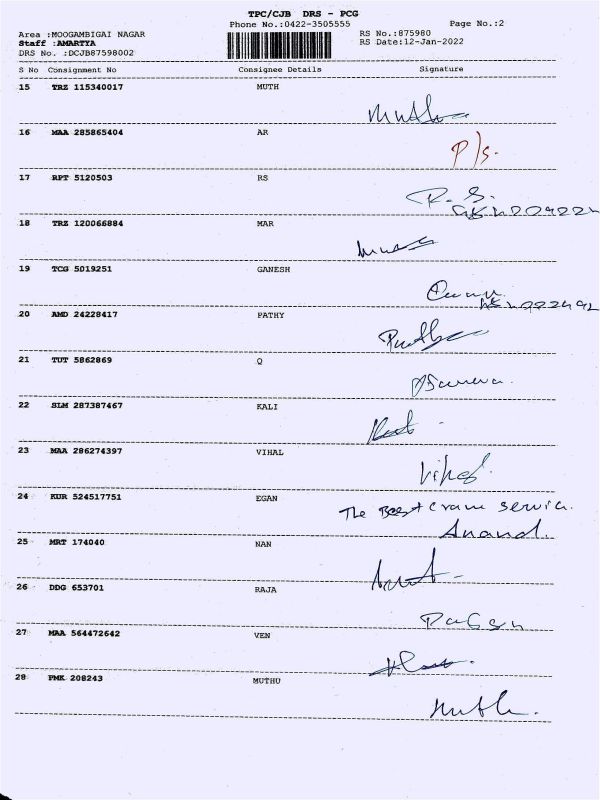 TPC/CJB DRS - PCG
Phone No.:0422-3505555 Page No.:2
Area :MOOGAMBIGAI NAGAR RS No.:875980
Staff :AMARTYA RS Date:12-Jan-2022
DRS No. :DCJB87598002
S No Consignment No Consignee Details Signature
15 TRZ 115340017 MUTH
16 MAA 285865404 AR
P/s.
17 RPT 5120503 RS
R. S.
18 TRZ 120066884 MAR
19 TCG 5019251 GANESH
20 AMD 24228417 PATHY
21 TUT 5862869 Q
22 SLM 287387467 KALI
23 MAA 286274397 VIHAL
Vihal
24 KUR 524517751 EGAN
The Best Crane Service.
Anand.
25 MRT 174040 NAN
26 DDG 653701 RAJA
27 MAA 564472642 VEN
28 PMK 208243 MUTHU